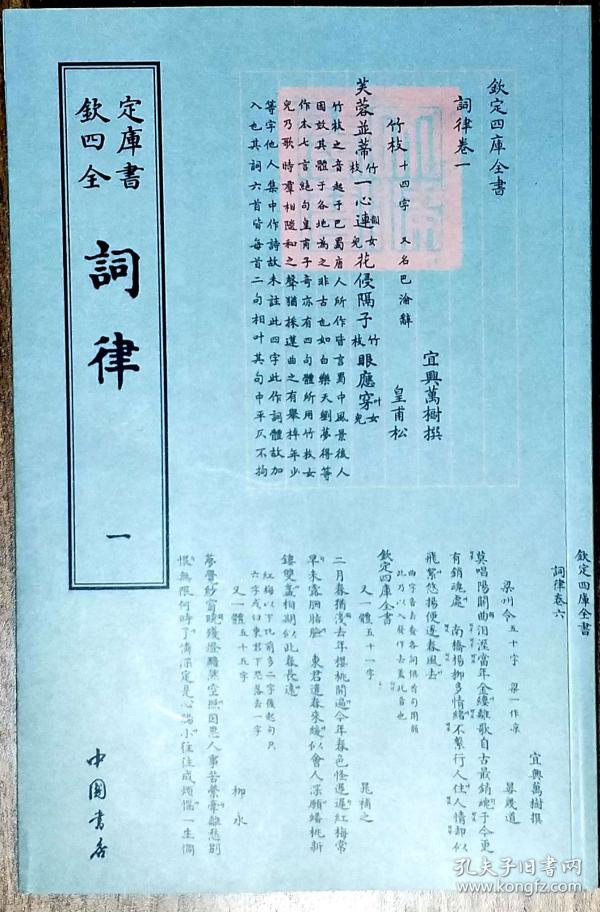 欽定四庫全書
詞律
一
中國書店
欽定四庫全書
詞律卷一
宜興萬樹撰
竹枝 十四字 又名巴渝辭
皇甫松
芙蓉並蒂竹枝一心連女兒花侵隔子竹枝眼應穿女兒
竹枝之音起于巴蜀唐人所作皆言蜀中風景後人
因效其體于各地為之非古也如白樂天劉夢得等
作本七言絶句皇甫子奇亦有四句體所用竹枝女
兒乃歌時羣相隨和之聲猶採蓮曲之有舉棹年少
等字他人集中作詩故未註此四字此作詞體故加
入也其詞六首皆每首二句相叶其句中平仄不拘
欽定四庫全書
詞律卷六
宜興萬樹撰
梁州令五十字 梁一作涼
晏幾道
莫唱陽關曲淚溼當年金縷離歌自古最銷魂于今更
有銷魂處 南橋楊柳多情緒不繫行人住人情却似
飛絮悠揚便逐春風去
欽定四庫全書
又一體五十一字
晁補之
二月春猶淺去年櫻桃開遍今年春色恠遲遲紅梅常
早未露胭脂臉 東君道春來緩似會人深願蟠桃新
鏤雙盞相期似此春長遠
紅梅以下比前多二字後起句只
六字或曰東君下恐落去一字
又一體五十五字
柳永
夢覺紗窗曉殘燈黯然空照因思人事苦縈牽離愁别
恨無限何時了 憐深定是心腸小往往成煩惱一生惆
孔夫子旧书网
www.kongfz.com